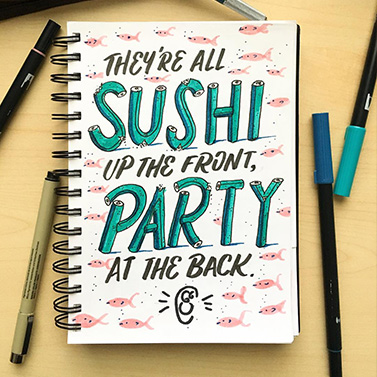 THEY'RE ALL
SUSHI
UP THE FRONT,
PARTY
AT THE BACK.